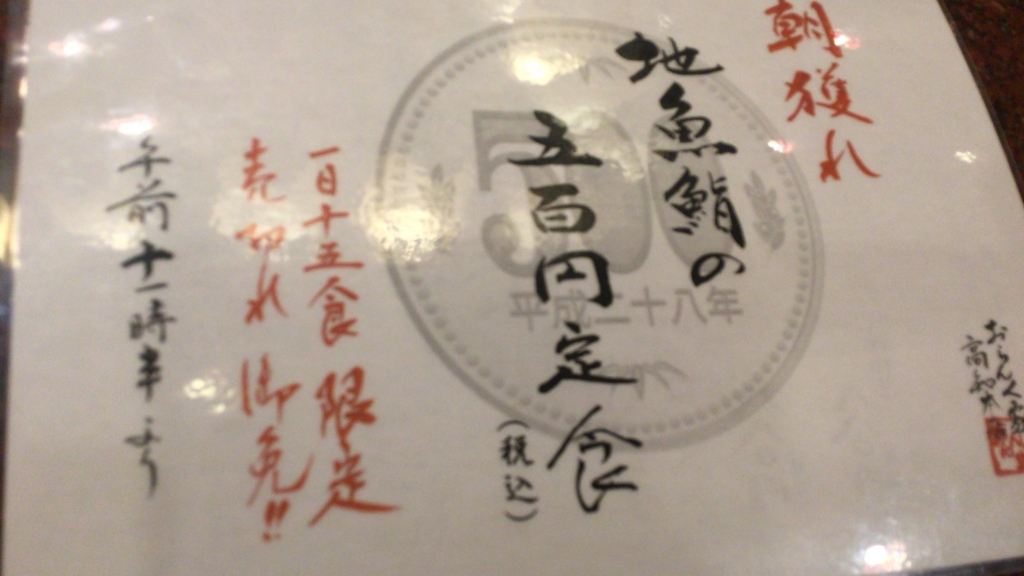 朝獲れ
地魚鮨の
五百円定食
(税込)
一日十五食 限定
売切れ 御免!!
午前十一時半より
500
平成二十八年
おらんく家
高知本店